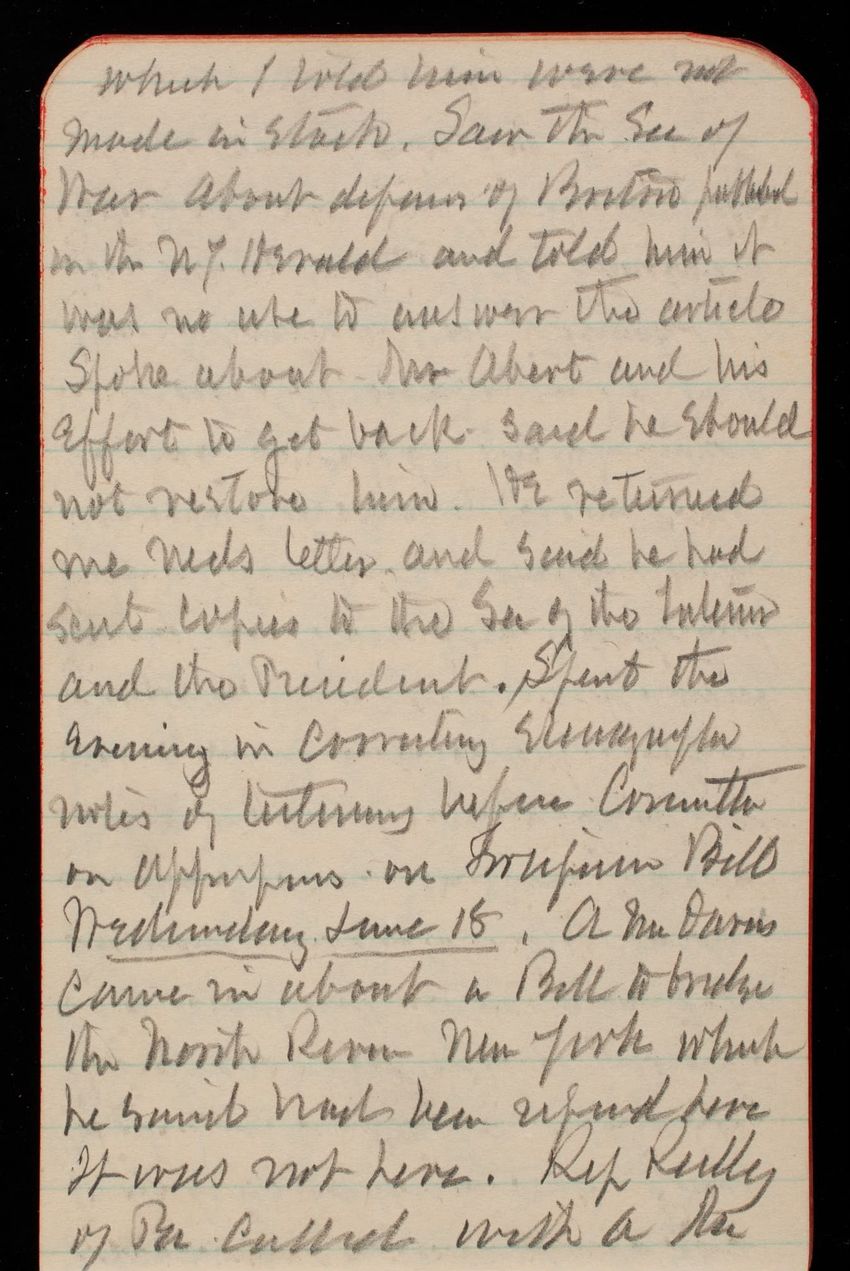 which I told him were not
made in stock. Saw the Sec of
War about defenses of Boston published
in the N.Y. Herald and told him it
was no use to answer the article
Spoke about Mr Abert and his
Effort to get back. Said he should
not restore him. He returned
me Neds letter and said he had
sent copies to the Sec of the Interior
and the President. Spent the
Evening in Correcting Stenographer
notes of testimony before Committee
on Appropns. on Fortification Bill
Wednesday June 18. A Mr Davis
came in about a Bill to bridge
the North River New York which
he said had been refered here
It was not here. Rep Reilly
of Pa. called with a Mr